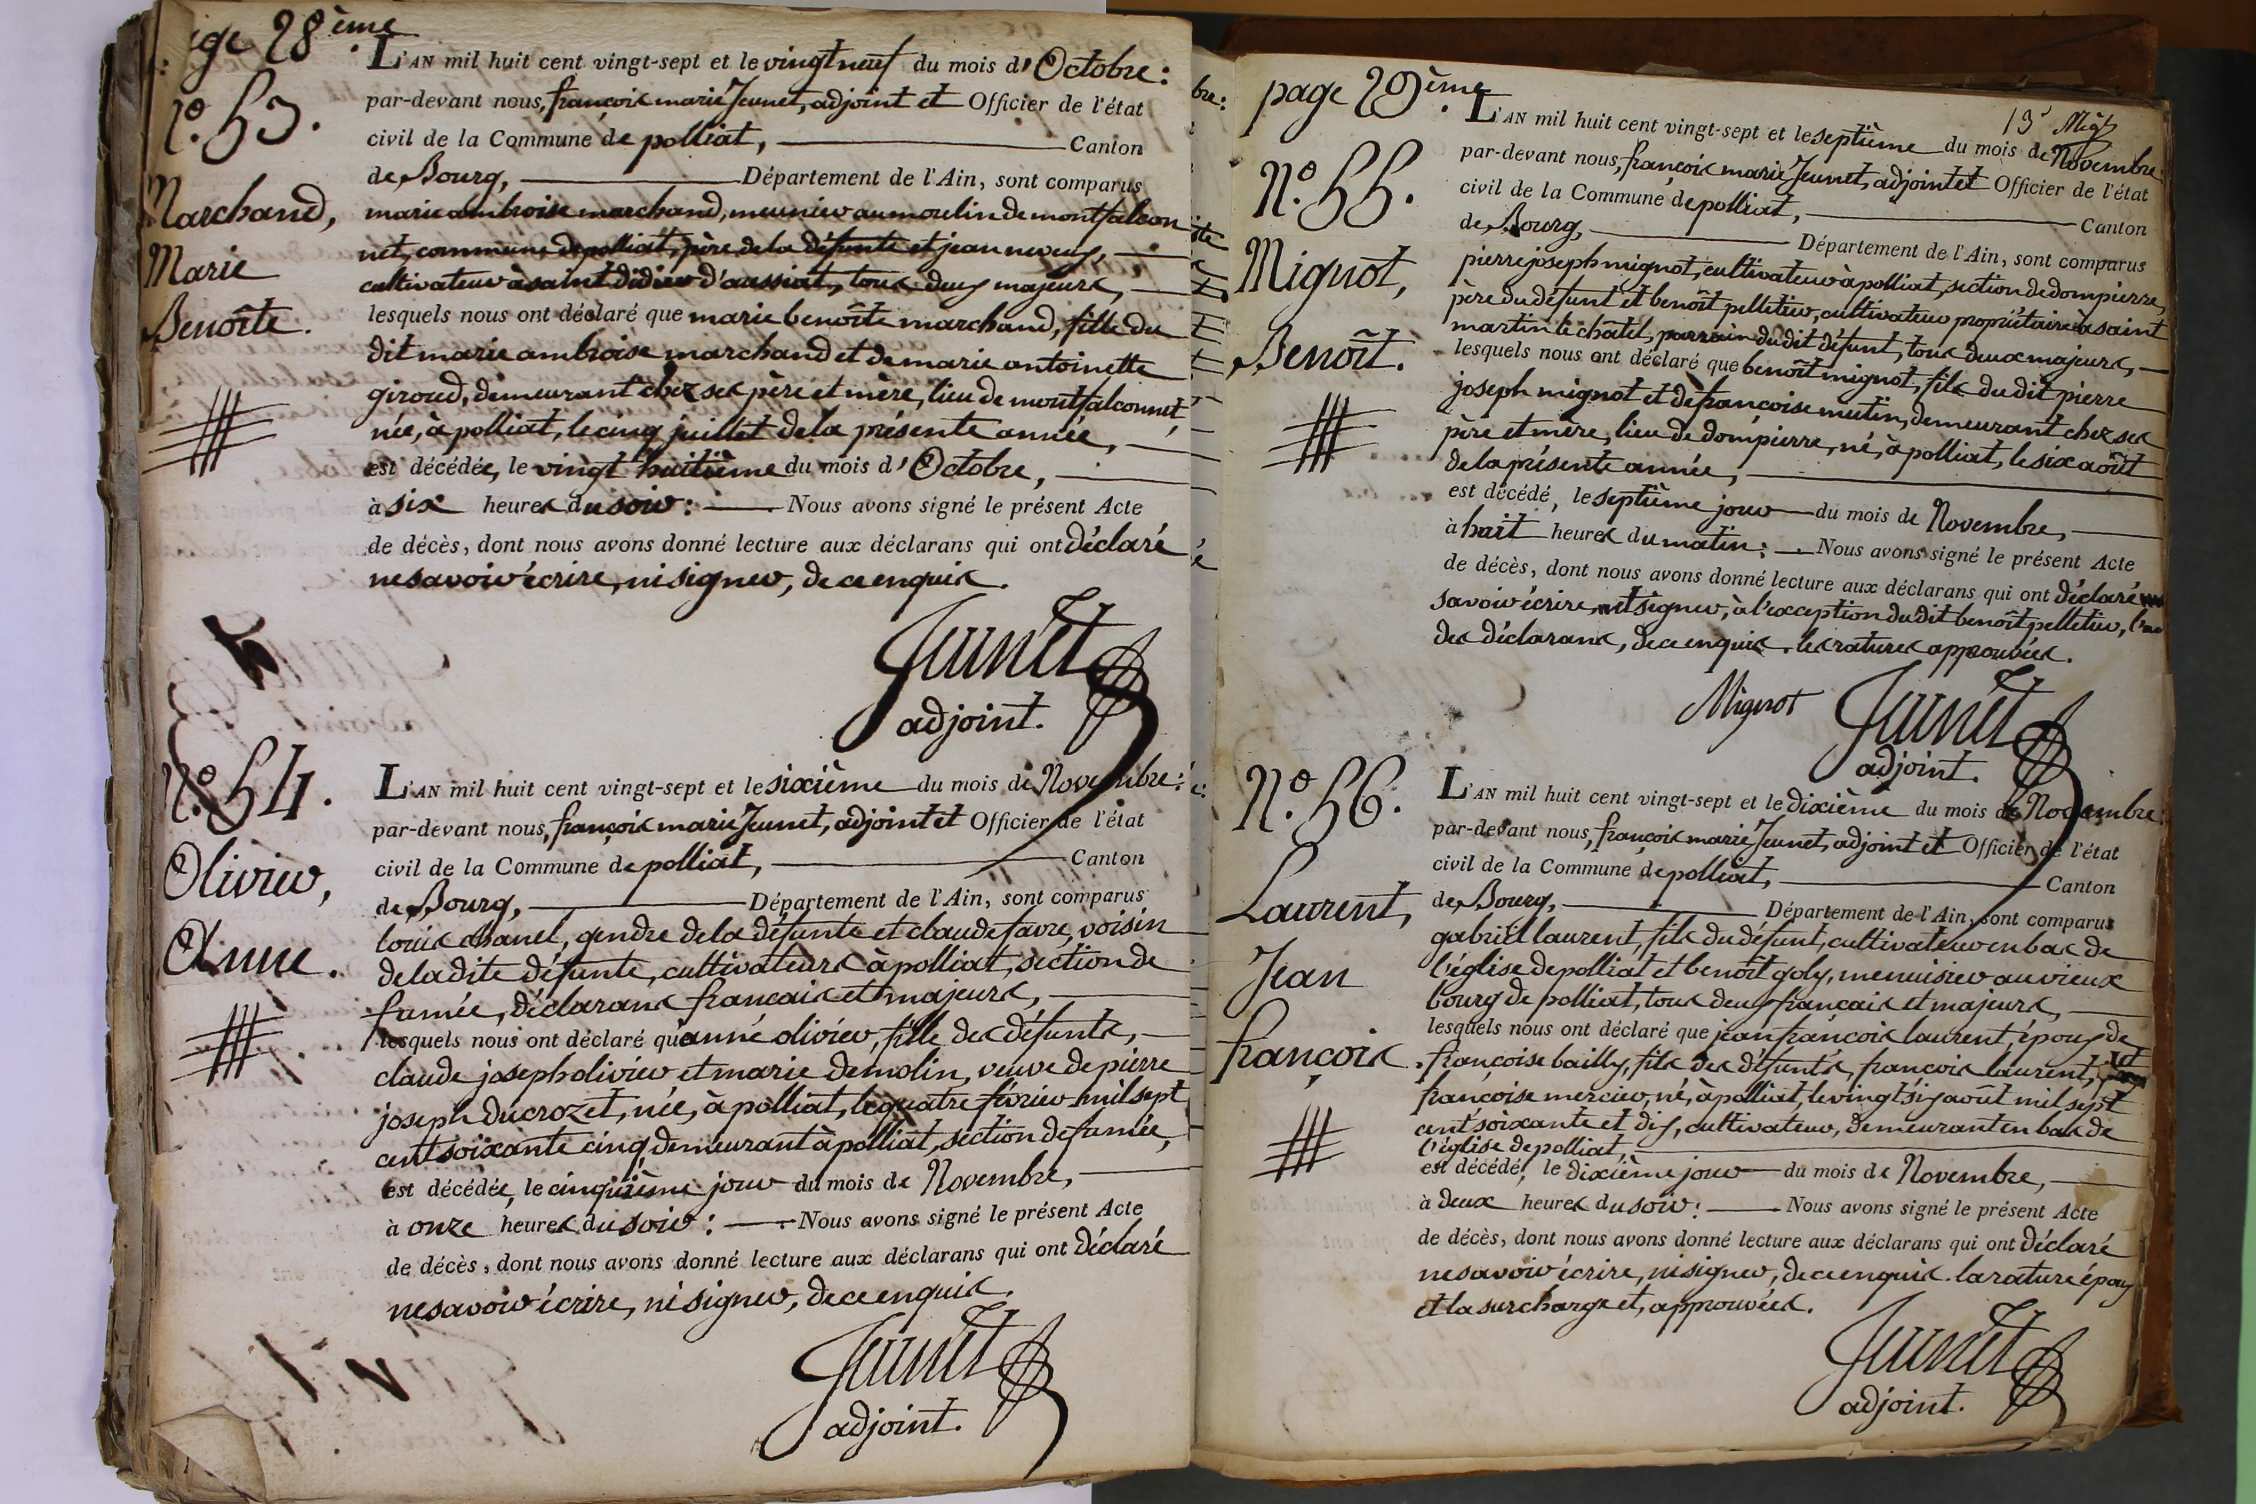 ge 28ème
N.º 53.
Marchand,
Marie
Benoîte.
L'AN mil huit cent vingt-sept et le vingt neuf du mois d'Octobre:
par-devant nous, françois marie Jeunet, adjoint et Officier de l'état
civil de la Commune de polliat, Canton
de Bourg, Département de l'Ain, sont comparus
marie ambroise marchand, meunier au moulin de montfalcon
net, commune de polliat, père de la défunte et jean neveux,
cultivateur à saint didier d'aussiat, tous deux majeurs,
lesquels nous ont déclaré que marie benoîte marchand, fille du
dit marie ambroise marchand et de marie antoinette
giroud, demeurant chez ses père et mère, lieu de montfalconnet,
née, à polliat, le cinq juillet de la présente année,
est décédée, le vingt huitième du mois d'Octobre,
à six heures du soir: Nous avons signé le présent Acte
de décès, dont nous avons donné lecture aux déclarans qui ont déclaré
ne savoir écrire, ni signer, de ce enquis.
Jeunet
adjoint.
N.º 54.
Olivier,
Anne.
L'AN mil huit cent vingt-sept et le sixième du mois de Novembre:
par-devant nous, françois marie Jeunet, adjoint et Officier de l'état
civil de la Commune de polliat, Canton
de Bourg, Département de l'Ain, sont comparus
louis chanel, gendre de la défunte et claude favre, voisin
de la dite défunte, cultivateurs à polliat, section de
fumée, déclarans français et majeurs,
lesquels nous ont déclaré qu'anne olivier, fille des défunts,
claude joseph olivier et marie demolin, veuve de pierre
joseph ducrozet, née, à polliat, le quatre février mil sept
cent soixante cinq demeurant à polliat, section de fumée,
est décédée, le cinquième jour du mois de Novembre,
à onze heures du soir: Nous avons signé le présent Acte
de décès, dont nous avons donné lecture aux déclarans qui ont déclaré
ne savoir écrire, ni signer, de ce enquis.
Jeunet
adjoint.
page 29ème
N.º 55.
Mignot,
Benoît.
L'AN mil huit cent vingt-sept et le septième du mois de Novembre:
par-devant nous, françois marie Jeunet, adjoint et Officier de l'état
civil de la Commune de polliat, Canton
de Bourg, Département de l'Ain, sont comparus
pierre joseph mignot, cultivateur à polliat, section de dompierre,
père du défunt et benoît pelletier, cultivateur propriétaire à saint
martin le châtel, parrain du dit défunt, tous deux majeurs,
lesquels nous ont déclaré que benoît mignot, fils du dit pierre
joseph mignot et de françoise meutin, demeurant chez ses
père et mère, lieu de dompierre, né, à polliat, le six août
de la présente année,
est décédé, le septième jour du mois de Novembre,
à huit heures du matin: Nous avons signé le présent Acte
de décès, dont nous avons donné lecture aux déclarans qui ont déclaré
savoir écrire, et signer, à l'exception du dit benoît pelletier, l'un
des déclarans, de ce enquis. les ratures approuvées.
Mignot Jeunet
adjoint.
N.º 56.
Laurent,
Jean
françois.
L'AN mil huit cent vingt-sept et le dixième du mois de Novembre:
par-devant nous, françois marie Jeunet, adjoint et Officier de l'état
civil de la Commune de polliat, Canton
de Bourg, Département de l'Ain, sont comparus
gabriel laurent, fils du défunt, cultivateur en bas de
l'église de polliat et benoît goly, menuisier au vieux
bourg de polliat, tous deux français et majeurs,
lesquels nous ont déclaré que jean françois laurent, époux de
françoise bailly, fils des défunts, françois laurent, et
françoise mercier, né, à polliat, le vingt six août mil sept
cent soixante et dix, cultivateur, demeurant en bas de
l'église de polliat,
est décédé, le dixième jour du mois de Novembre,
à deux heures du soir: Nous avons signé le présent Acte
de décès, dont nous avons donné lecture aux déclarans qui ont déclaré
ne savoir écrire, ni signer, de ce enquis. la rature époux
et la surcharge et, approuvées.
Jeunet
adjoint.